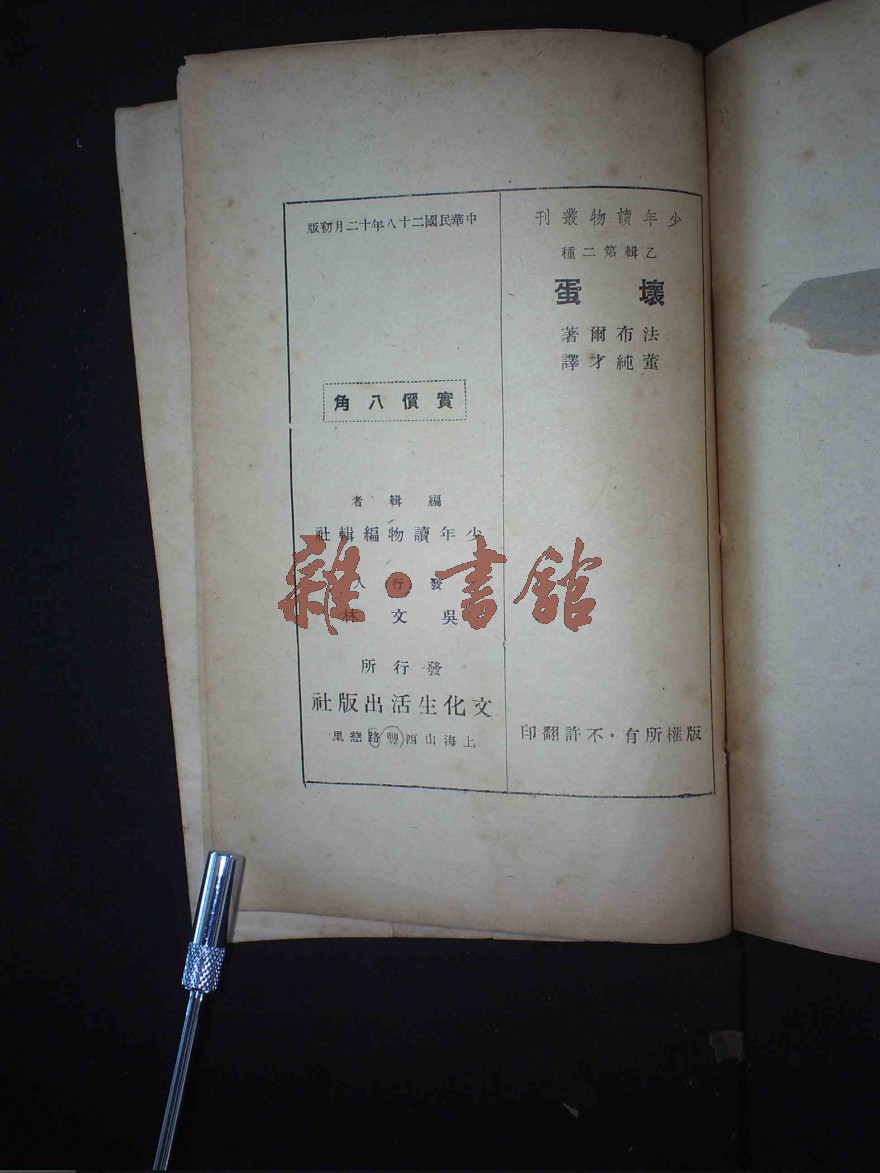 少年讀物叢刊
乙輯第二種
壞蛋
法布爾著
董純才譯
版權所有・不許翻印
中華民國二十八年十二月初版
實價八角
編輯者
少年讀物編輯社
發行人
吳文林
發行所
文化生活出版社
上海山西路慈豐里
雜・書館